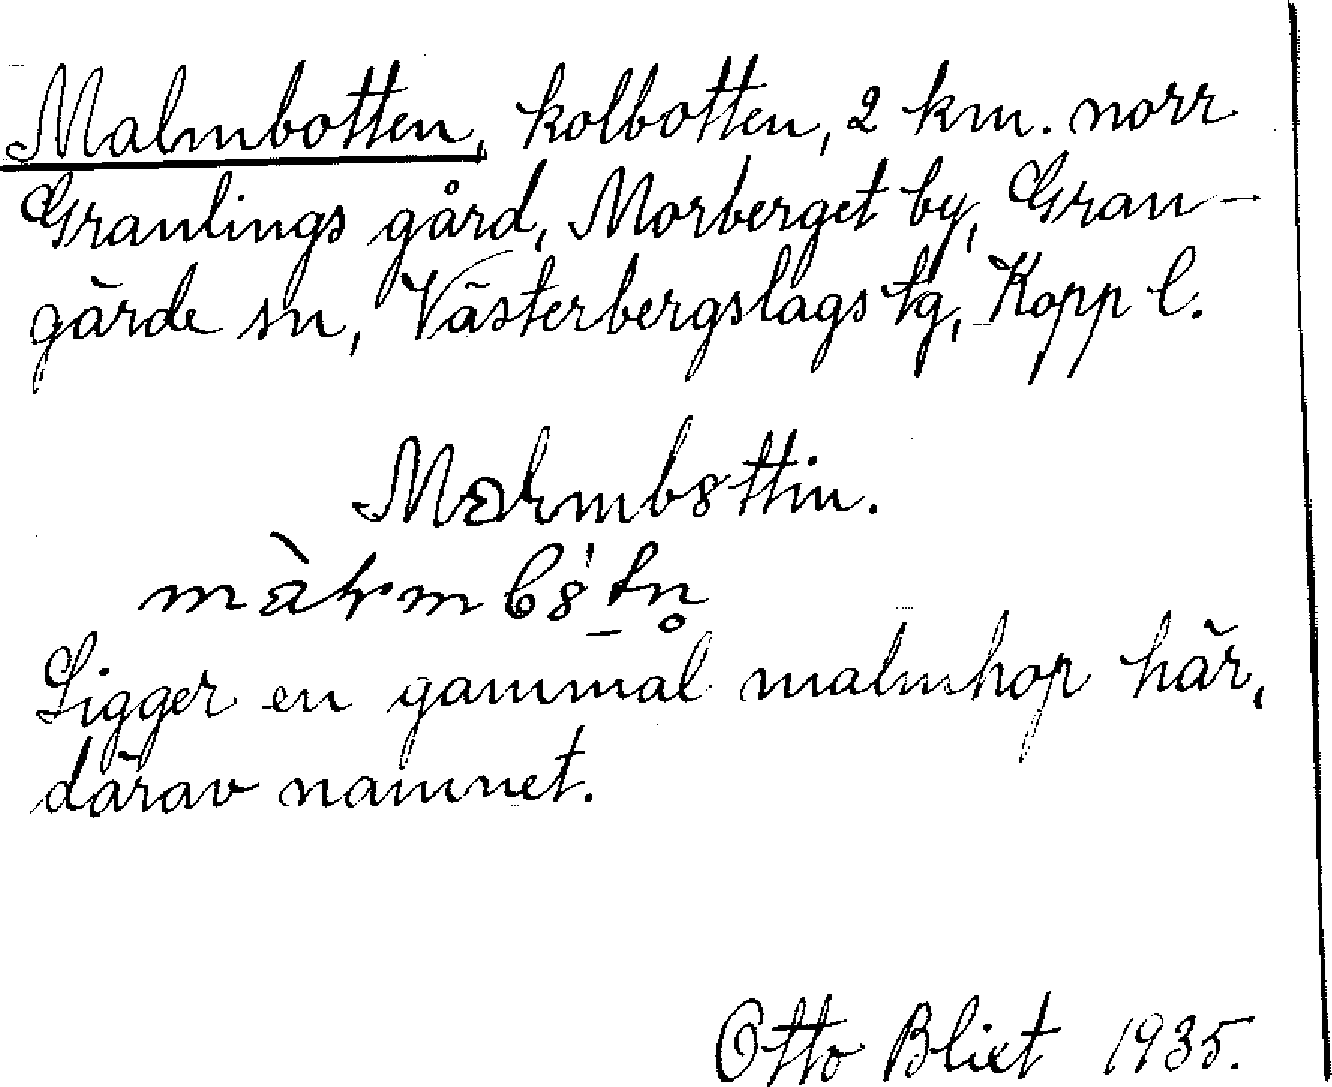 Malmbotten, kolbotten, 2 km. norr
Granlings gård, Morberget by, Gran-
gärde sn, Västerbergslags tg, Kopp l.
Malmbottin.
Ligger en gammal malmhop här,
därav namnet.
Otto Blixt 1935.